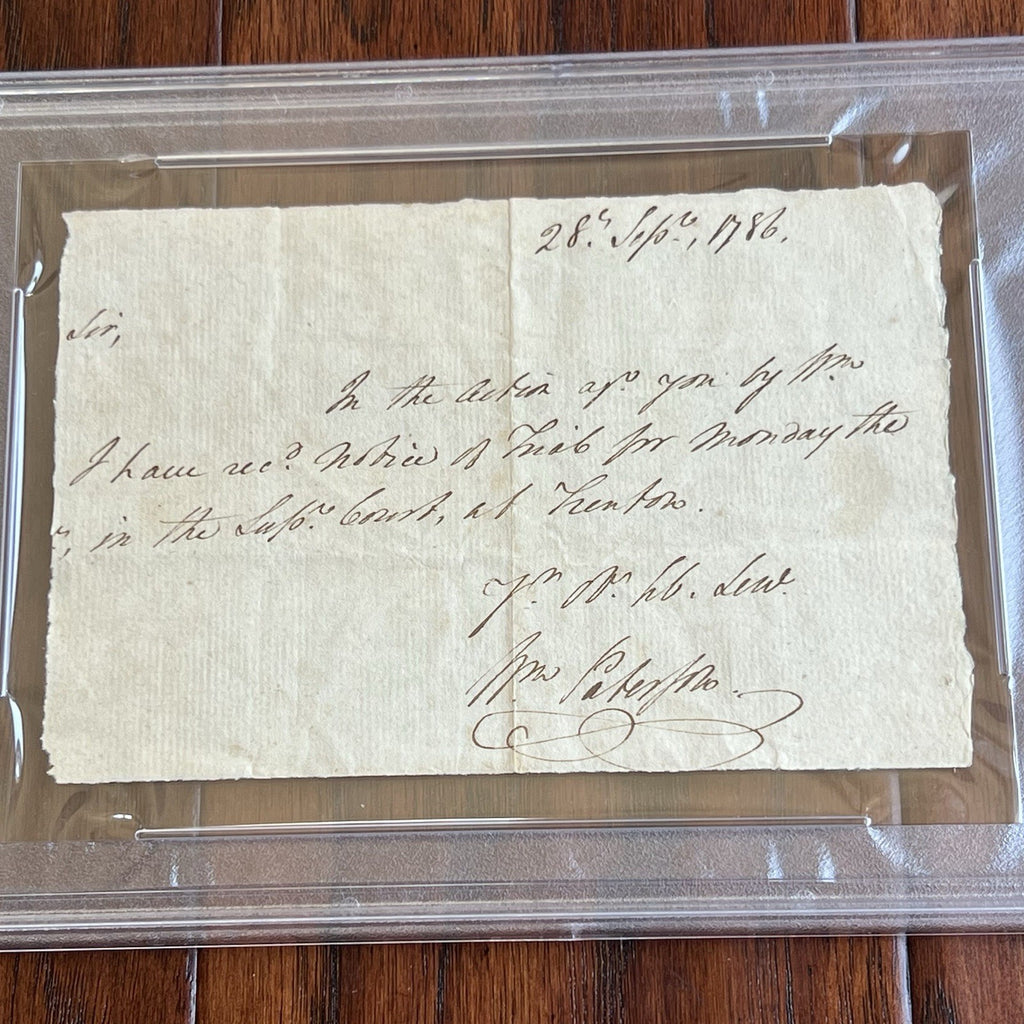 28th. Sepr., 1786.
Sir,
In the Action agt. you by Wm
I have recd. Notice of Trial for Monday the
in the Supr. Court, at Trenton.
Yr. Ob. hb. Serv.
Wm Paterson.